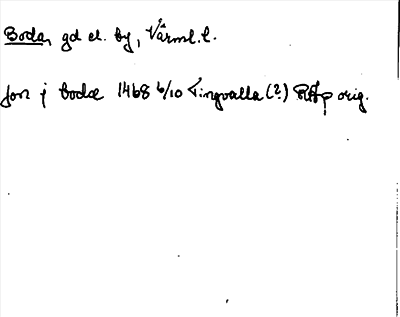 Boda, gd el. by, Värml. l.
Jon j bodæ 1468 6/10 Tingvalla (?) RAp orig.